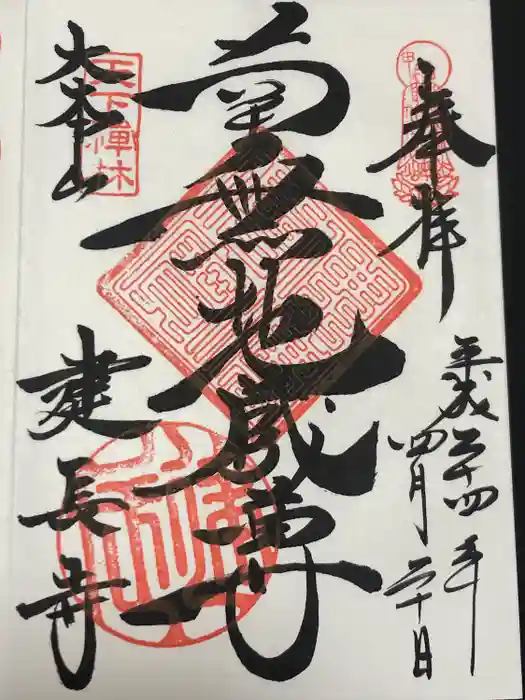 奉拝
平成二十四年
四月二十日
南無地蔵尊
大本山
天下禅林
建長寺